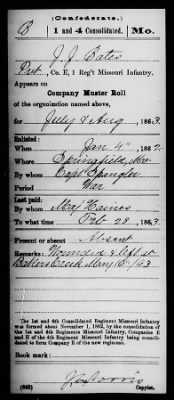 (Confederate.)
B 1 and 4 Consolidated. Mo.
J. J. Bates
Pvt., Co. E, 1 Reg't Missouri Infantry.
Appears on
Company Muster Roll
of the organization named above,
for July & Aug, 1863.
Enlisted:
When Jan 4", 1862.
Where Springfield, Mo.
By whom Capt Spangler
Period War
Last paid:
By whom Maj Haines
To what time Feb 28, 1863.
Present or absent Absent
Remarks: Wounded & left at
Bakers Creek May 16"/63
The 1st and 4th Consolidated Regiment Missouri Infantry
was formed about November 1, 1862, by the consolidation of
the 1st and 4th Regiments Missouri Infantry. Companies E
and K of the 4th Regiment Missouri Infantry being consolidated
to form Company E of the new regiment.
Book mark:
(642)
Copyist.